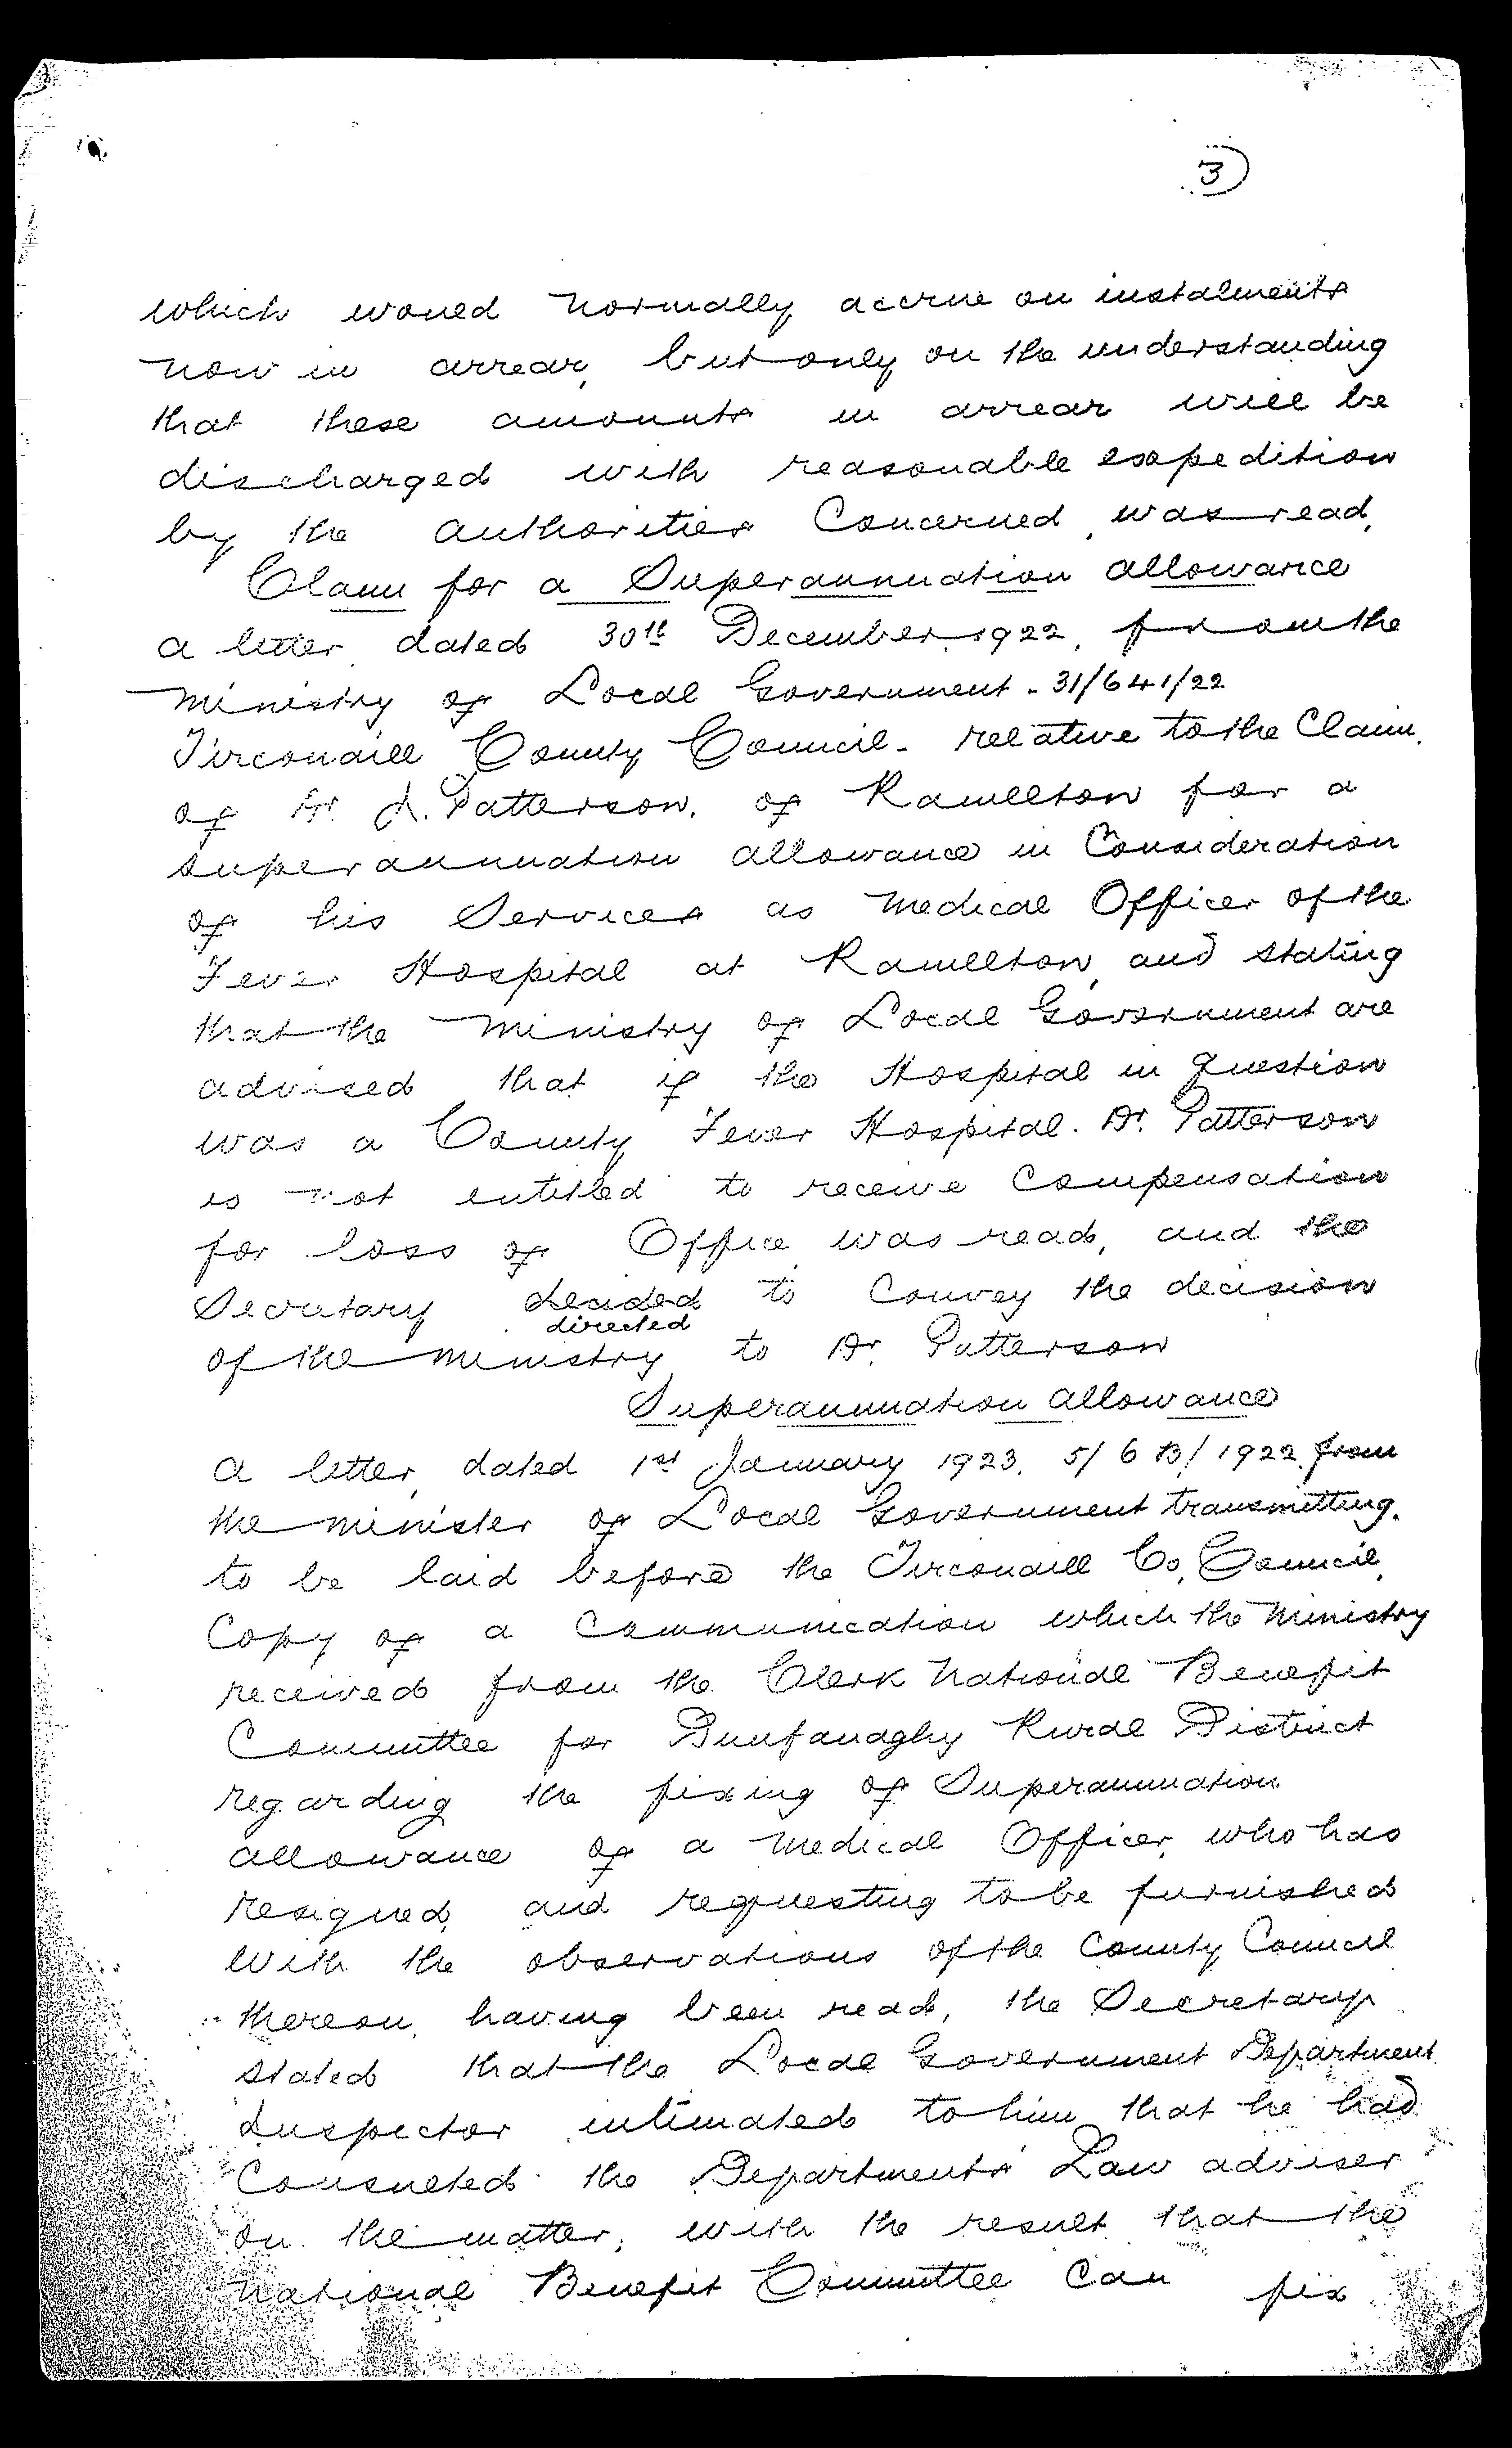 3
which would normally accrue on instalments
now in arrear, but only on the understanding
that these amounts in arrear will be
discharged with reasonable expedition
by the authorities Concerned, was read.
Claim for a Superannuation allowance
a letter, dated 30th December, 1922, from the
Ministry of Local Government - 31/641/22
Tirconaill County Council - relative to the Claim
of Dr. J. Patterson, of Ramelton for a
superannuation allowance in Consideration
of his Services as Medical Officer of the
Fever Hospital at Ramelton, and stating
that the Ministry of Local Government are
advised that if the Hospital in question
was a County Fever Hospital. Dr. Patterson
is not entitled to receive Compensation
for loss of Office, was read, and the
Secretary decided to Convey the decision
directed
of the Ministry to Dr. Patterson
Superannuation allowance
a letter, dated 1st January 1923, 5/6 B/1922, from
the Minister of Local Government transmitting,
to be laid before the Tirconaill Co. Council,
Copy of a Communication which the Ministry
received from the Clerk National Benefit
Committee for Dunfanaghy Rural District
regarding the fixing of Superannuation
allowance of a Medical Officer, who has
resigned, and requesting to be furnished
with the observations of the County Council
thereon, having been read, the Secretary
stated that the Local Government Department
Inspector intimated to him that he had
Consulted the Department's Law adviser
on the matter, with the result that the
National Benefit Committee Can fix